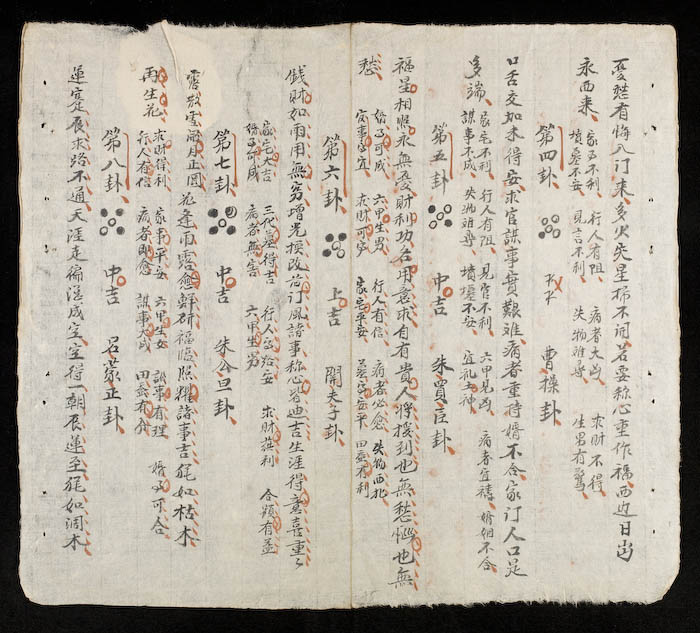 憂愁有悔入门来多火失星掃不用若要称心重作福西边日出
永西来 家宅不利 行人有阻 病者大凶 求财不得
墳墓不安 見官不利 失物难尋 生男有驚
第四卦 下下 曹操卦
口舌交加未得安求官謀事實艱难病者重持婚不合家门人口足
多端 家宅不利 行人有阻 見官不利 六甲見凶 病者宜禱 婚姻不合
謀事不成 失物难尋 墳墓不安 宜礼土神
第五卦 中吉 朱買臣卦
福星相照永無憂財利功名用意求自有貴人將接到也無愁惱也無
愁 婚姻可成 六甲生男 行人有信 病者必愈 失物西北
官事宜 求财可 家宅平安 墓宅安平 田蚕有利
第六卦 上吉 関夫子卦
钱財如雨用無穷增光換改旧门風諸事称心皆迪吉生涯得意喜重々
家宅大吉 三代墓得吉 行人 安 求财 利 合顯有益
婚姻可成 病者無害 六甲生男
第七卦 中吉 朱公旦卦
雲散雪 月正圆花逢雨露愈鮮研福臨照耀諸事吉能如枯木
再生花 求财得利 家事平安 六甲生女 謀事有理 婚姻可合
行人有信 病者即愈 謀事大成 田蚕有
第八卦 中吉 吕蒙正卦
運定辰求路不通天涯走徧總成空空得一朝辰運至能如涸木